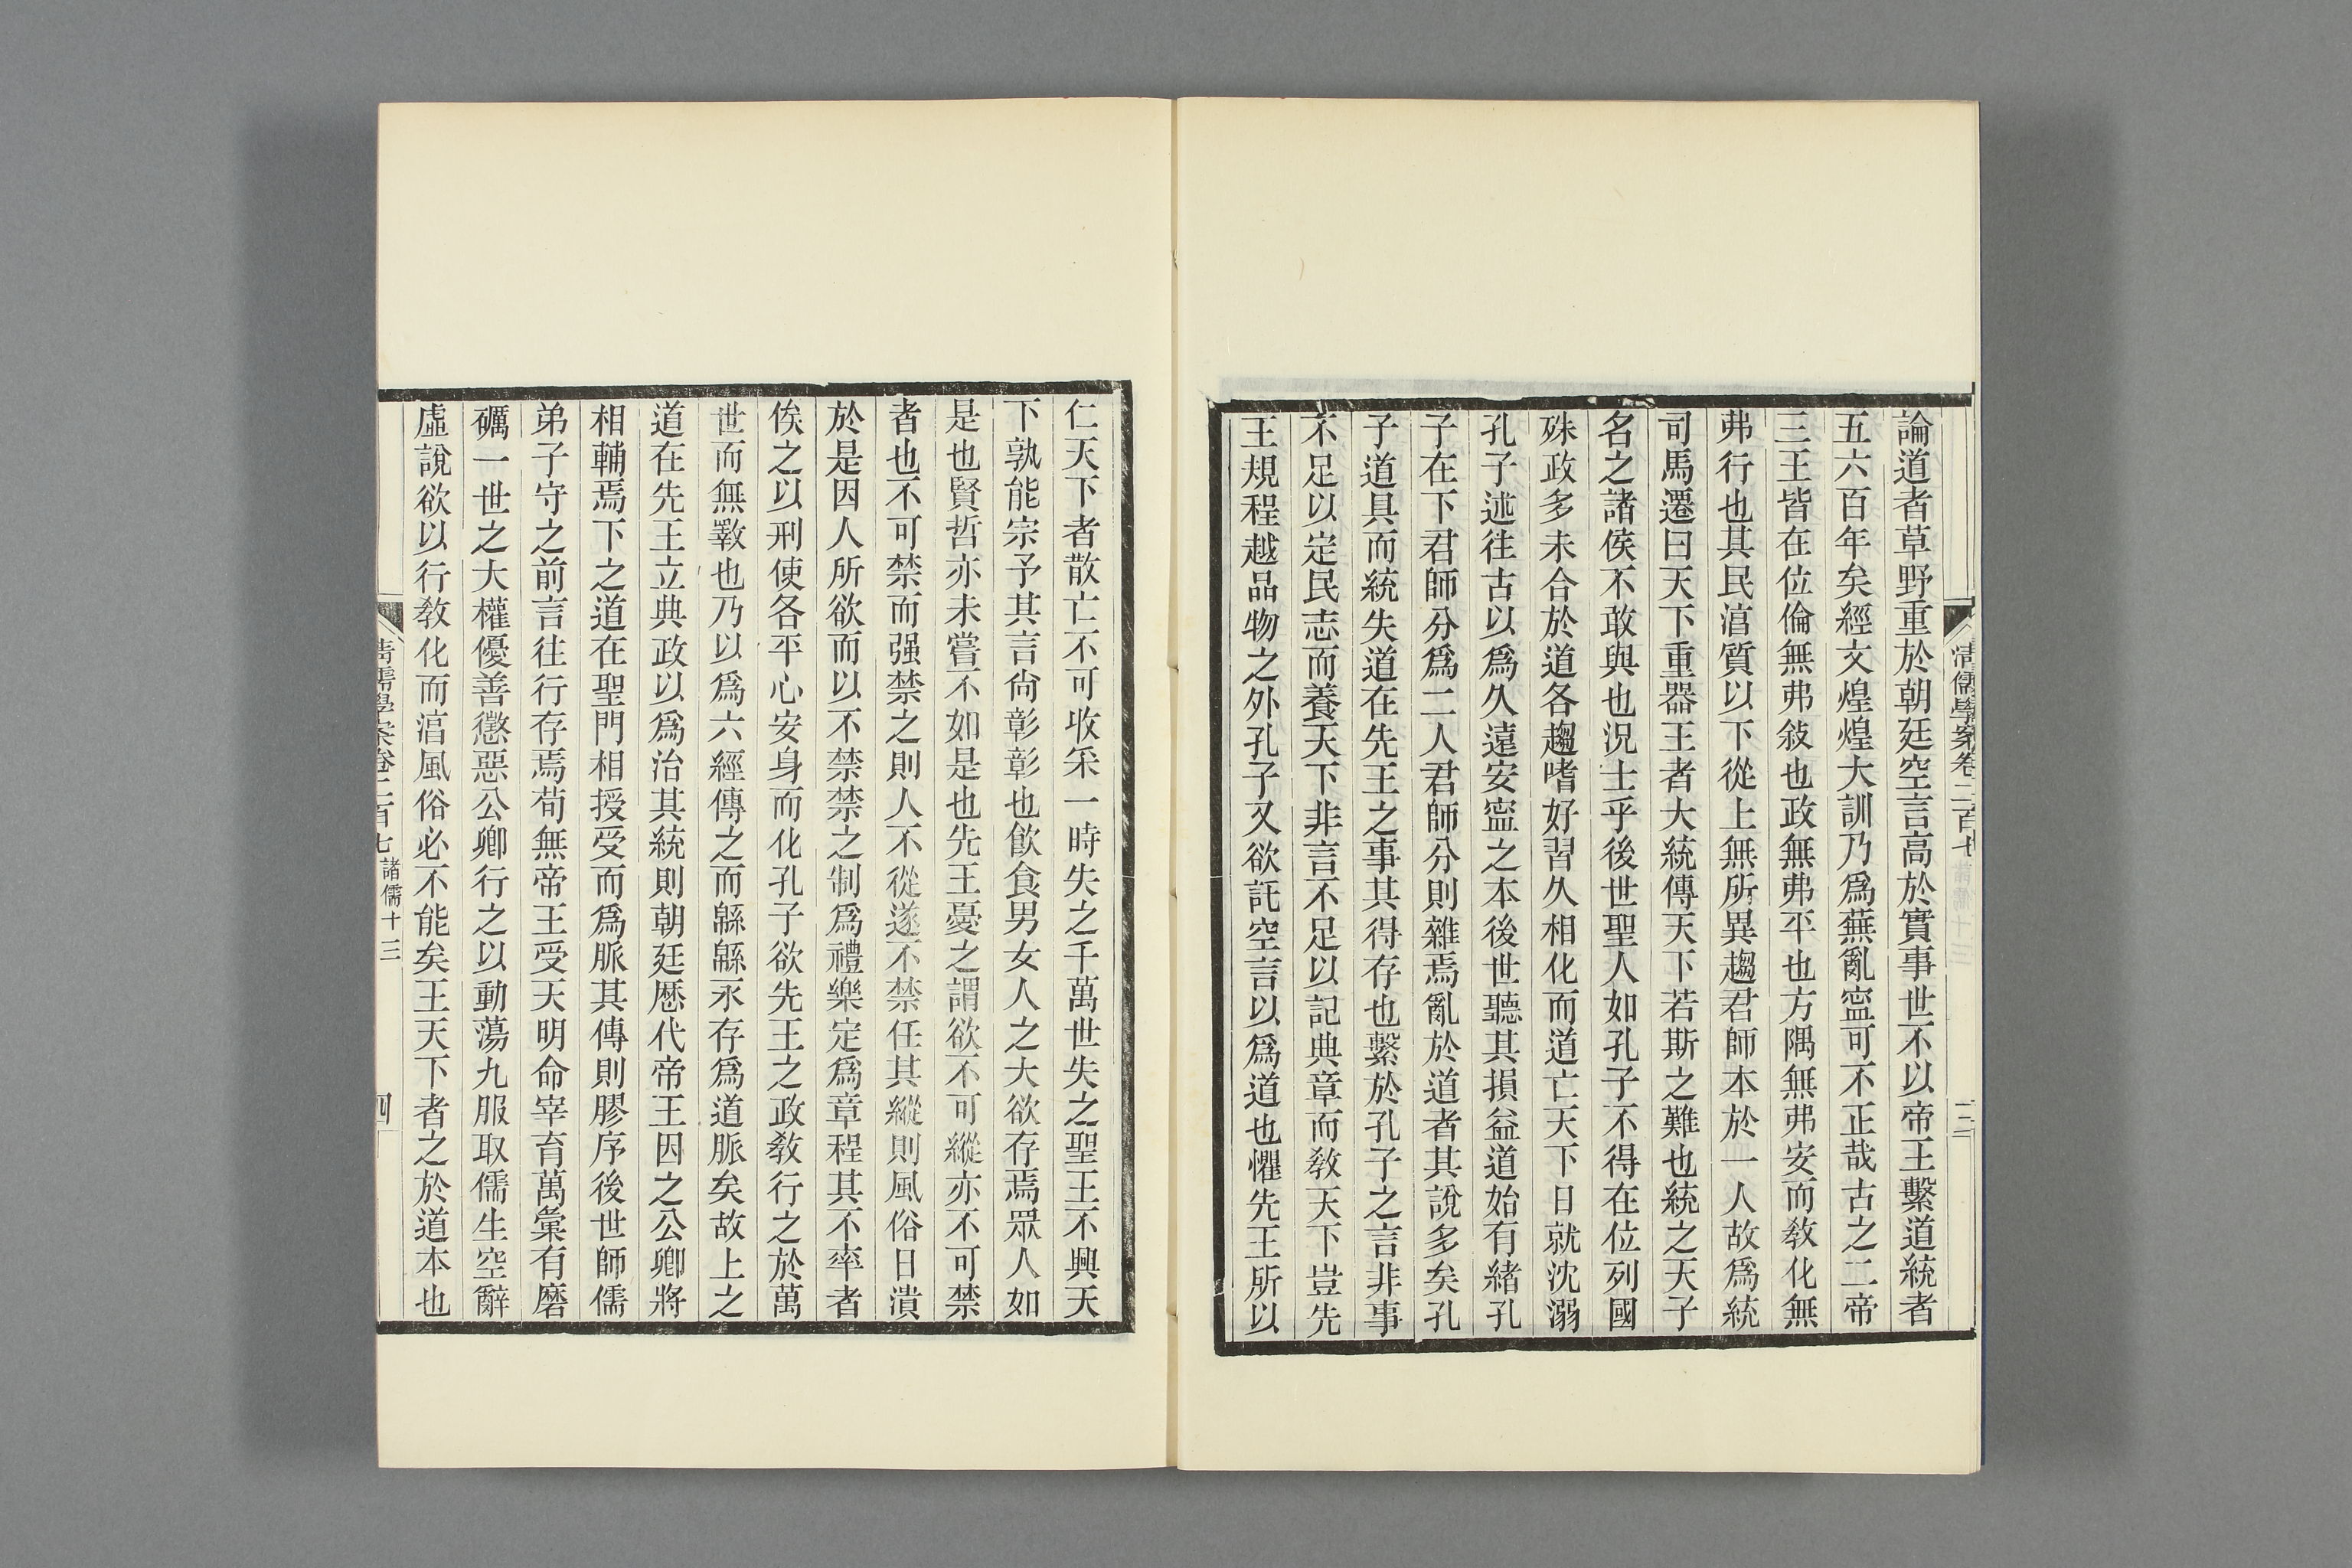 清儒學案卷二百七
諸儒十三
三
論道者草野重於朝廷空言高於實事世不以帝王繫道統者
五六百年矣經文煌煌大訓乃爲蕪亂寍可不正哉古之二帝
三王皆在位倫無弗敍也政無弗平也方隅無弗安而敎化無
弗行也其民湻質以下從上無所異趨君師本於一人故爲統
司馬遷曰天下重器王者大統傳天下若斯之難也統之天子
名之諸侯不敢與也況士乎後世聖人如孔子不得在位列國
殊政多未合於道各趨嗜好習久相化而道亡天下日就沈溺
孔子述往古以爲久遠安寍之本後世聽其損益道始有緒孔
子在下君師分爲二人君師分則雜焉亂於道者其說多矣孔
子道具而統失道在先王之事其得存也繫於孔子之言非事
不足以定民志而養天下非言不足以記典章而敎天下豈先
王規程越品物之外孔子又欲託空言以爲道也懼先王所以
仁天下者散亡不可收采一時失之千萬世失之聖王不興天
下孰能宗予其言尙彰彰也飮食男女人之大欲存焉眾人如
是也賢哲亦未嘗不如是也先王憂之謂欲不可縱亦不可禁
者也不可禁而强禁之則人不從遂不禁任其縱則風俗日潰
於是因人所欲而以不禁禁之制爲禮樂定爲章程其不率者
俟之以刑使各平心安身而化孔子欲先王之政敎行之於萬
世而無斁也乃以爲六經傳之而緜緜永存爲道脈矣故上之
道在先王立典政以爲治其統則朝廷歷代帝王因之公卿將
相輔焉下之道在聖門相授受而爲脈其傳則膠序後世師儒
弟子守之前言往行存焉苟無帝王受天明命宰育萬彙有磨
礪一世之大權優善懲惡公卿行之以動蕩九服取儒生空辭
虛說欲以行敎化而湻風俗必不能矣王天下者之於道本也
清儒學案卷二百七
諸儒十三
四